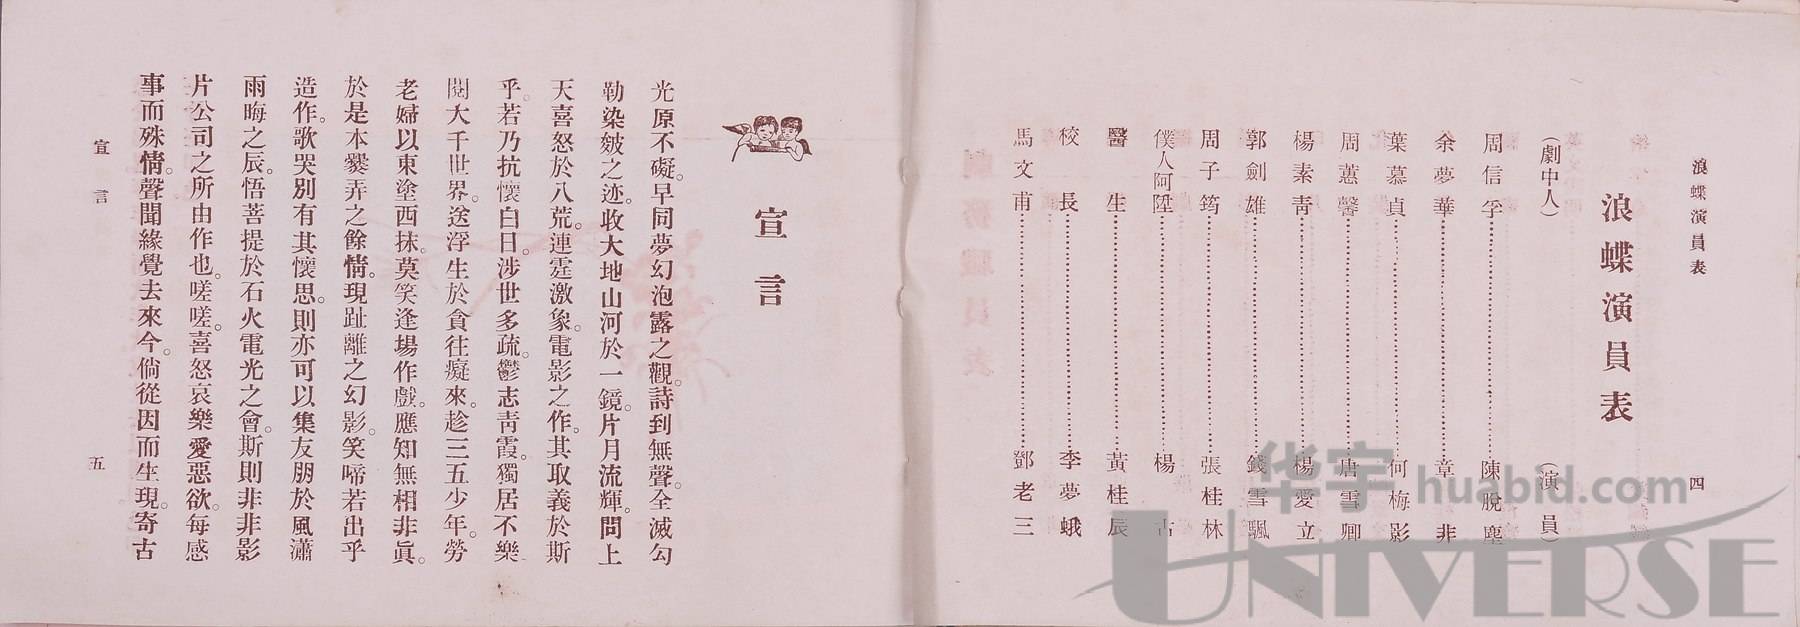 浪蝶演員表
四
浪蝶演員表
(劇中人) (演員)
周信孚 陳脫塵
余夢華 章非
葉慕貞 何梅影
周蕙馨 唐雪卿
楊素靑 楊愛立
郭劍雄 錢雪飄
周子筠 張桂林
僕人阿陞 楊古
醫生 黃桂辰
校長 李夢蛾
馬文甫 鄧老三
宣言
光原不礙。早同夢幻泡露之觀。詩到無聲。全滅勾
勒染皴之迹。收大地山河於一鏡。片月流輝。問上
天喜怒於八荒。連霆激象。電影之作。其取義於斯
乎。若乃抗懷白日。涉世多疏。鬱志靑霞。獨居不樂
閱大千世界。送浮生於貪往癡來。趁三五少年。勞
老婦以東塗西抹。莫笑逢場作戲。應知無相非眞。
於是本爨弄之餘情。現趾離之幻影。笑啼若出乎
造作。歌哭別有其懷思。則亦可以集友朋於風瀟
雨晦之辰。悟菩提於石火電光之會。斯則非非影
片公司之所由作也。嗟嗟。喜怒哀樂愛惡欲。每感
事而殊情。聲聞緣覺去來今。倘從因而生現。寄古
宣言
五
华宇 huabid.com
UNIVERSE